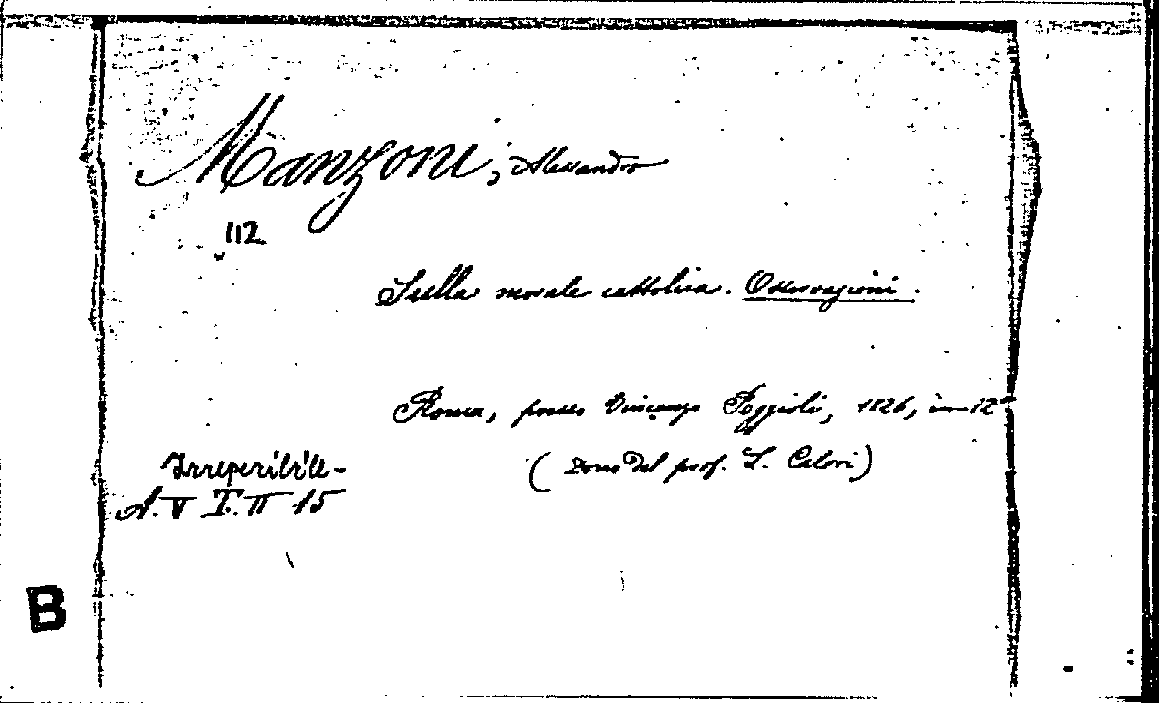 Manzoni, Alessandro
112
Sulla morale cattolica. Osservazioni.
Roma, presso Vincenzo Poggioli, 1826, in-12°
(Dono del prof. L. Calori)
Irreperibile-
A. V T. II 15
B